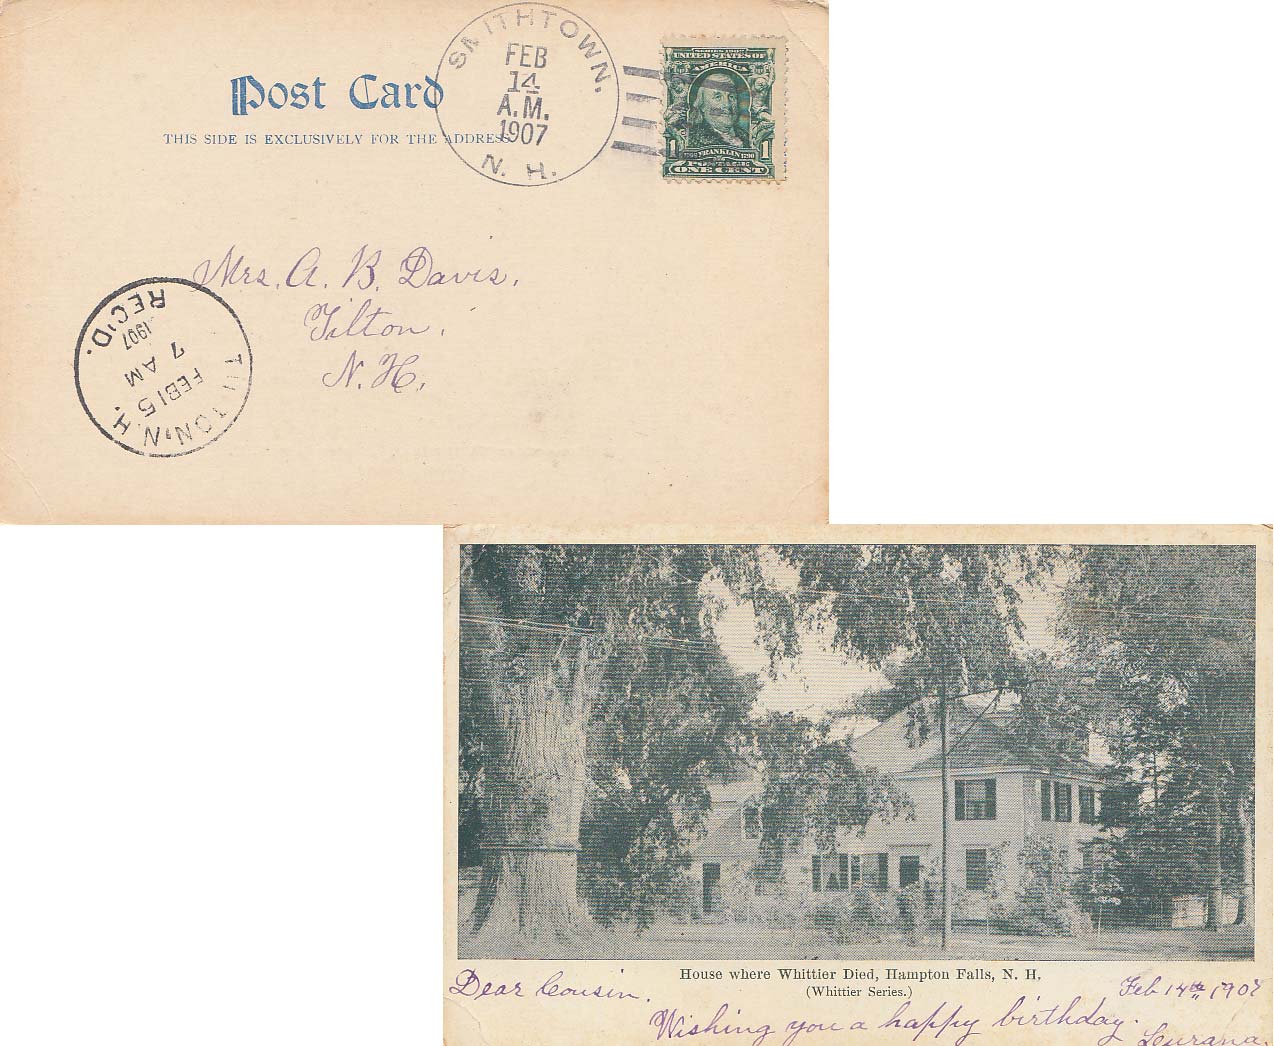 SMITHTOWN.
FEB
14
A.M.
1907
N. H.
SERIES 1902
UNITED STATES OF
AMERICA
FRANKLIN
POSTAGE
1 1
ONE CENT
Post Card
THIS SIDE IS EXCLUSIVELY FOR THE ADDRESS
Mrs. A. B. Davis,
Tilton,
N. H.
TILTON, N.H.
FEB 15
7 AM
1907
REC'D.
House where Whittier Died, Hampton Falls, N. H.
(Whittier Series.)
Dear Cousin. Feb 14th 1907
Wishing you a happy birthday.
Leurana.